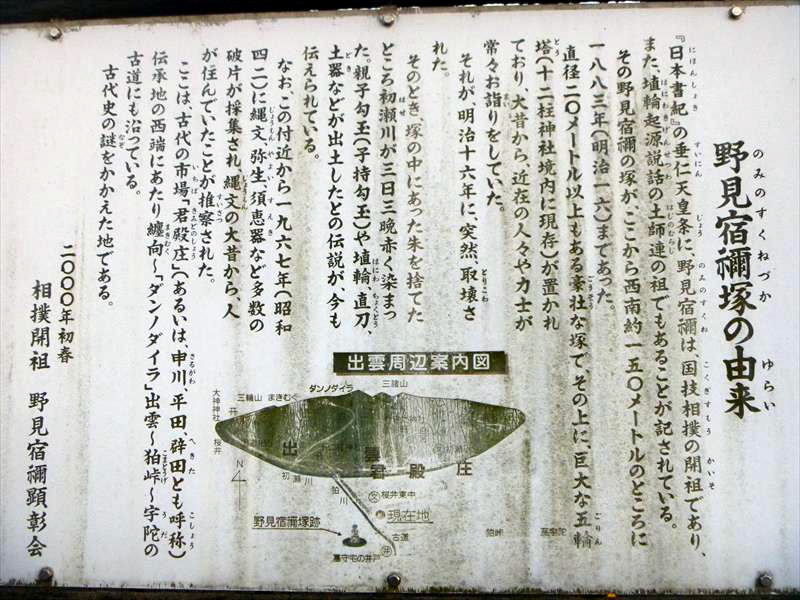 野見宿禰塚の由来
『日本書紀』の垂仁天皇条に、野見宿禰は、国技相撲の開祖であり、
また、埴輪起源説話の土師連の祖でもあることが記されている。
その野見宿禰の塚が、ここから西南約一五〇メートルのところに
一八八三年(明治一六)まであった。
直径二〇メートル以上もある豪壮な塚で、その上に、巨大な五輪
塔(十二柱神社境内に現存)が置かれ
ており、大昔から、近在の人々や力士が
常々お詣りをしていた。
それが、明治十六年に、突然、取壊さ
れた。
そのとき、塚の中にあった朱を捨てた
ところ初瀬川が三日三晩赤く染まっ
た。親子勾玉(子持勾玉)や埴輪、直刀、
土器などが出土したとの伝説が、今も
伝えられている。
なお、この付近から一九六七年(昭和
四二)に縄文、弥生、須恵器など多数の
破片が採集され、縄文の大昔から、人
が住んでいたことが推察された。
ここは、古代の市場「君殿庄」(あるいは、申川、平田、辟田とも呼称)
伝承地の西端にあたり、纏向〜「ダンノダイラ」出雲〜狛峠〜宇陀の
古道にも沿っている。
古代史の謎をかかえた地である。
二〇〇〇年初春
相撲開祖 野見宿禰顕彰会
出雲周辺案内図
ダンノダイラ
三諸山
三輪山
まきむく
大神神社
桜井
出雲
君殿庄
初瀬川
狛川
桜井東中
現在地
野見宿禰塚跡
古道
墓守宅の井戸
狛峠
N